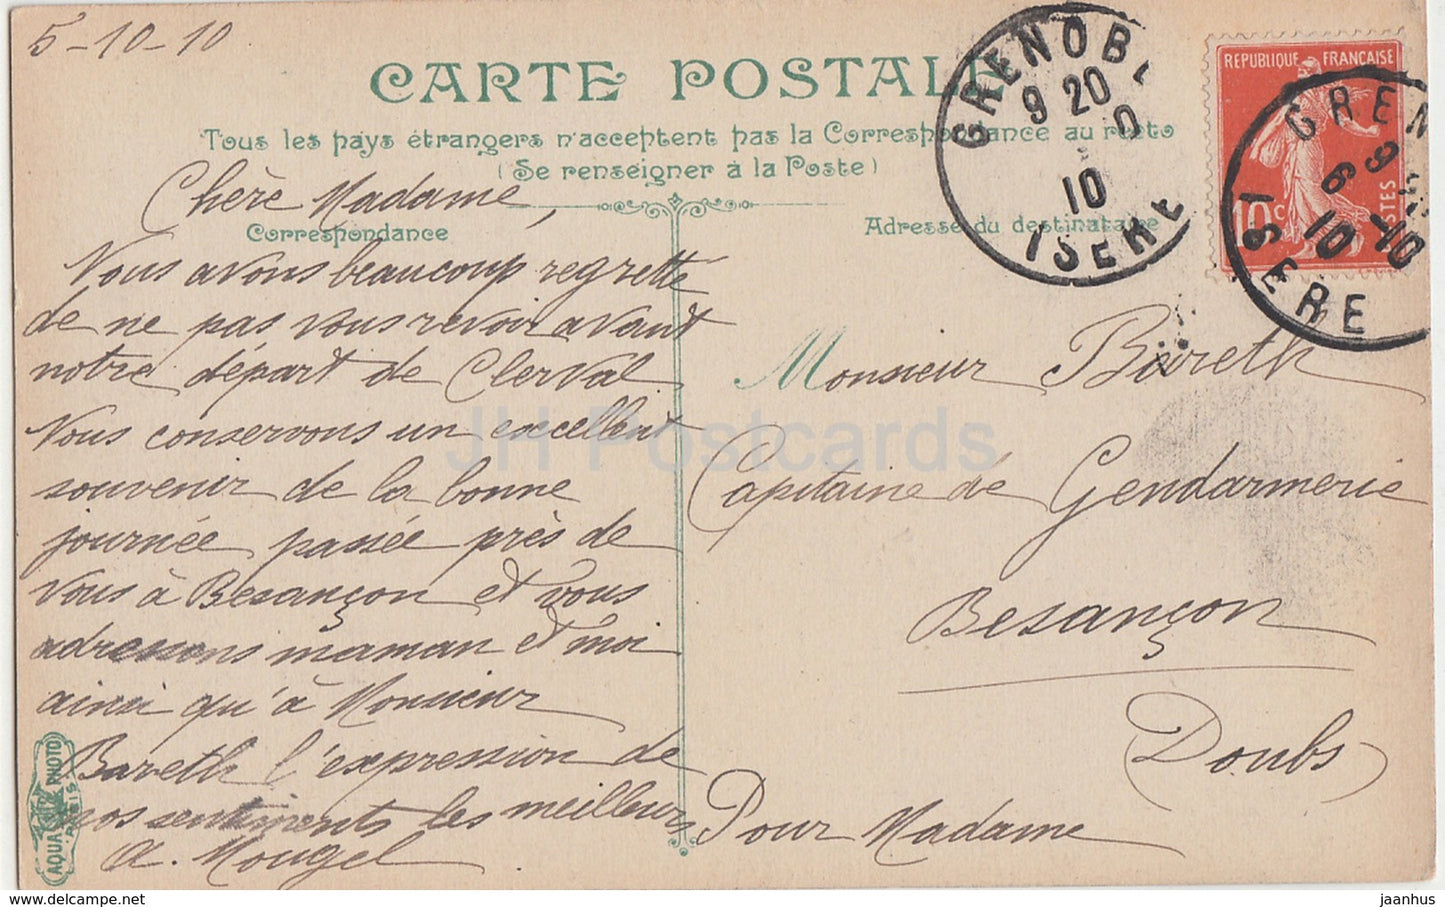 5-10-10
CARTE POSTALE
Tous les pays étrangers n'acceptent pas la Correspondance au recto
(Se renseigner à la Poste)
Correspondance
Adresse du destinataire
Chère Madame,
Nous avons beaucoup regretté
de ne pas vous revoir avant
notre départ de Clerval.
Nous conservons un excellent
souvenir de la bonne
journée passée près de
vous à Besançon et vous
adressons maman et moi
ainsi qu'à Monsieur
Bareth l'expression de
nos sentiments les meilleurs
A. Mougel
GRENOBL
9 20
10
ISERE
REPUBLIQUE FRANÇAISE
10c
POSTES
GREN
9
6
10 10
ISERE
Monsieur Bareth
Capitaine de Gendarmerie
Besançon
Doubs
Pour Madame
AQUA PHOTO
PARIS
JH Postcards
www.hippostcard.com
jaanhus